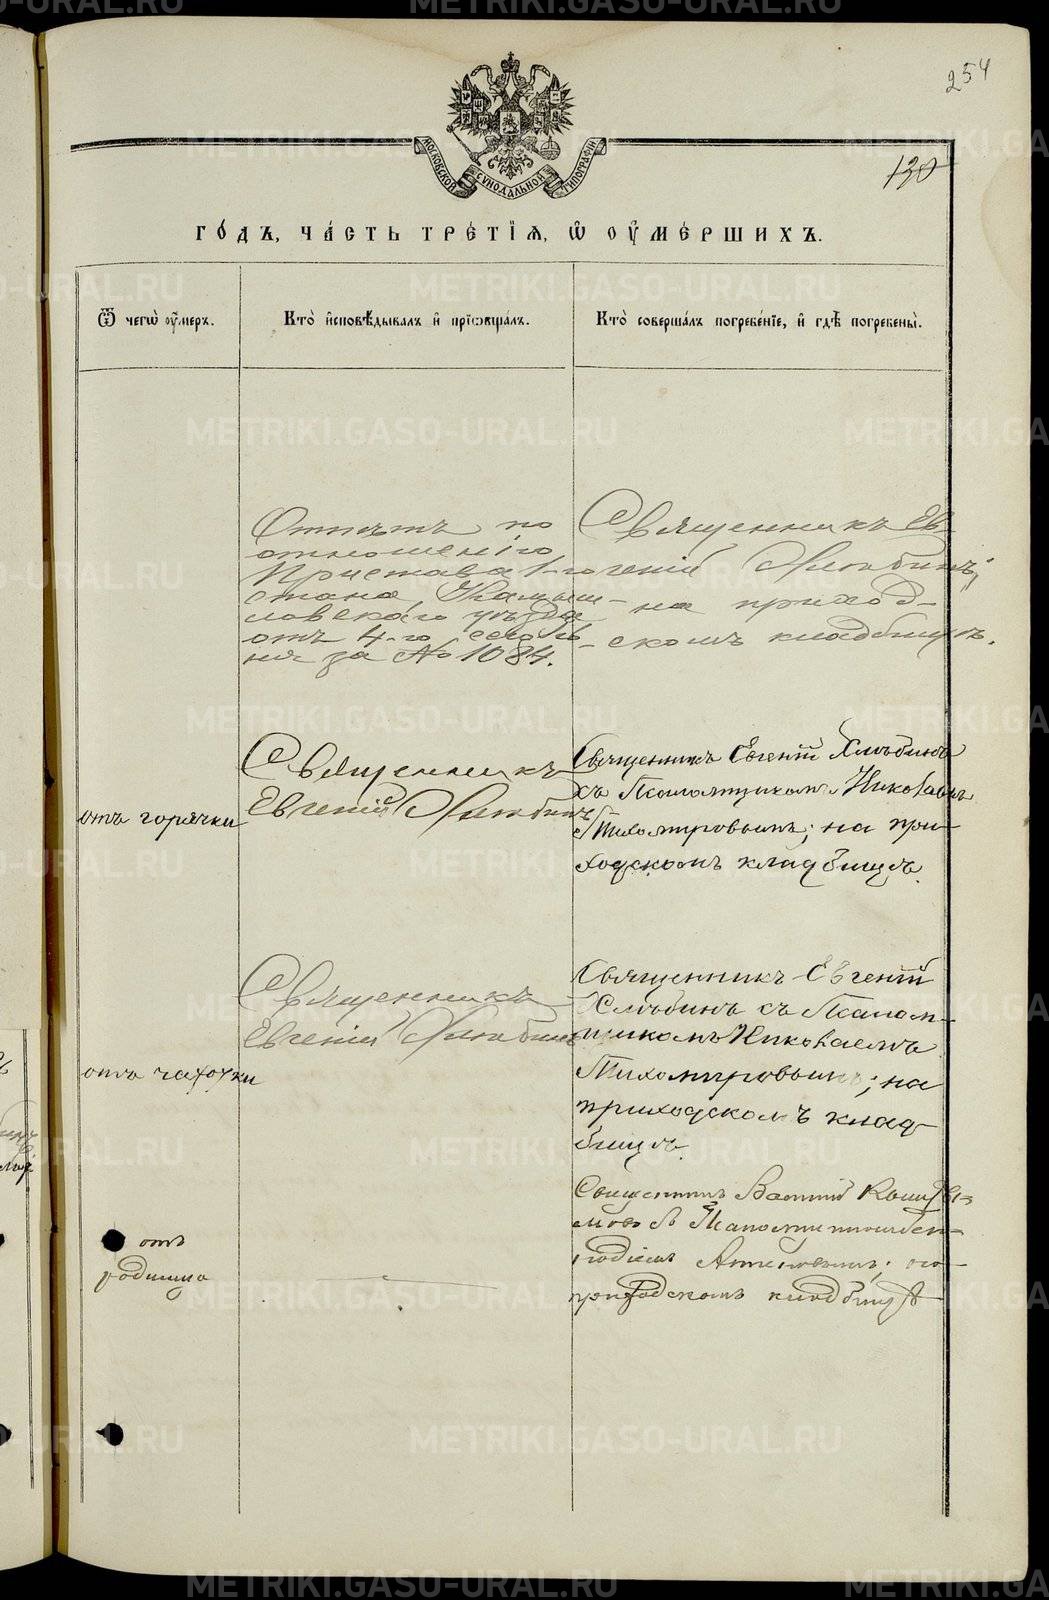 254
130
МОСКОВСКОЙ СѴНОДАЛЬНОЙ ТИПОГРАФІИ
ГО́ДЪ, ЧА́СТЬ ТРЕ́ТЇѦ, Ѡ҆ ОУ҆МЕ́РШИХЪ.
Ѿ чегѡ̀ оу҆́меръ.
Кто̀ и҆сповѣ́дывалъ и҆ прїѡбща́лъ.
Кто̀ соверша́лъ погребе́нїе, и҆ гдѣ̀ погребены̀.
Отпѣтъ по
отношенію
Пристава 1-го
стана Камыш-
ловскаго уѣзда
отъ 4-го
ня за № 1084.
Священникъ Ев-
геній Хлѣбинъ;
на приход-
скомъ кладбищѣ.
отъ горячки
Священникъ
Евгеній Хлѣбинъ
Священникъ Евгеній Хлѣбинъ
съ Псаломщикомъ Николаемъ
Тихомировымъ; на при-
ходскомъ кладбищѣ.
отъ чахотки
Священникъ
Евгеній Хлѣбинъ
Священникъ Евгеній
Хлѣбинъ съ Псалом-
щикомъ Николаемъ
Тихомировымъ; на
приходскомъ клад-
бищѣ.
отъ
родимца
Священникъ Василій
съ Псаломщикомъ
на
приходскомъ кладбищѣ
METRIKI.GASO-URAL.RU